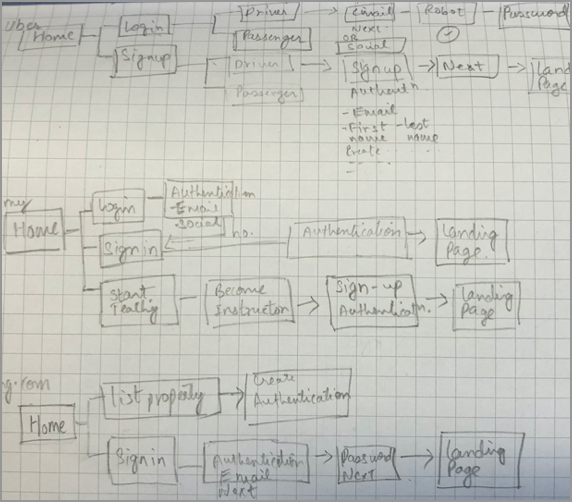 Uber
Home
Login
Signup
Driver
Passenger
Driver
Passenger
Email
Next
OR
Social
Robot
Password
Signup
Authentn
- Email
- First - last
name name
Create
Next
Land
Page
my
Home
Login
Authentication
- Email
- Social
Sign in
no.
Authentication
Landing
Page
Start
Become
Instructor
Sign-up
Authenticatn.
Landing
Page
g.com
Home
List property
Create
Authentication
Sign in
Authentication
Email
Next
Password
Next
Landing
Page